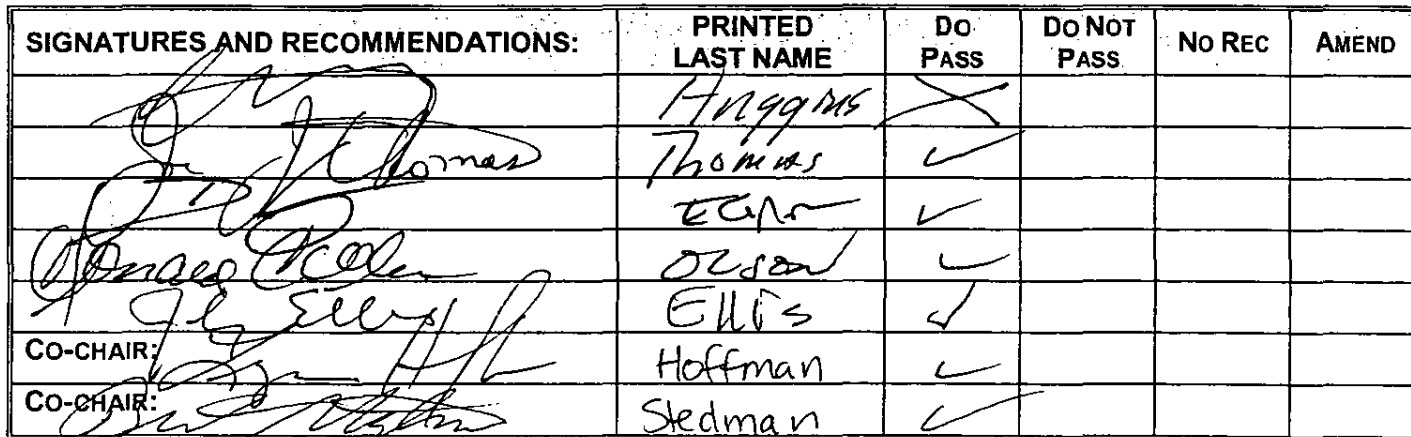 SIGNATURES AND RECOMMENDATIONS: PRINTED LAST NAME DO PASS DO NOT PASS NO REC AMEND
Huggins
Thomas Thomas
Olson
Ellis Ellis
CO-CHAIR: Hoffman
CO-CHAIR: Stedman